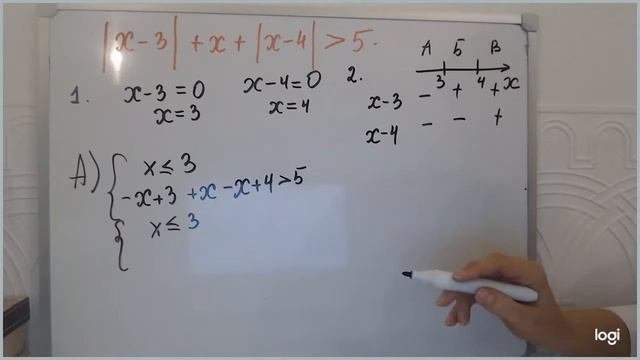 |x-3| + x + |x-4| > 5.
1. x-3=0 x-4=0
x=3 x=4
2. А Б В
3 4 x
x-3 - + +
x-4 - - +
А) { x ≤ 3
-x+3 +x -x+4>5
{ x ≤ 3
logi